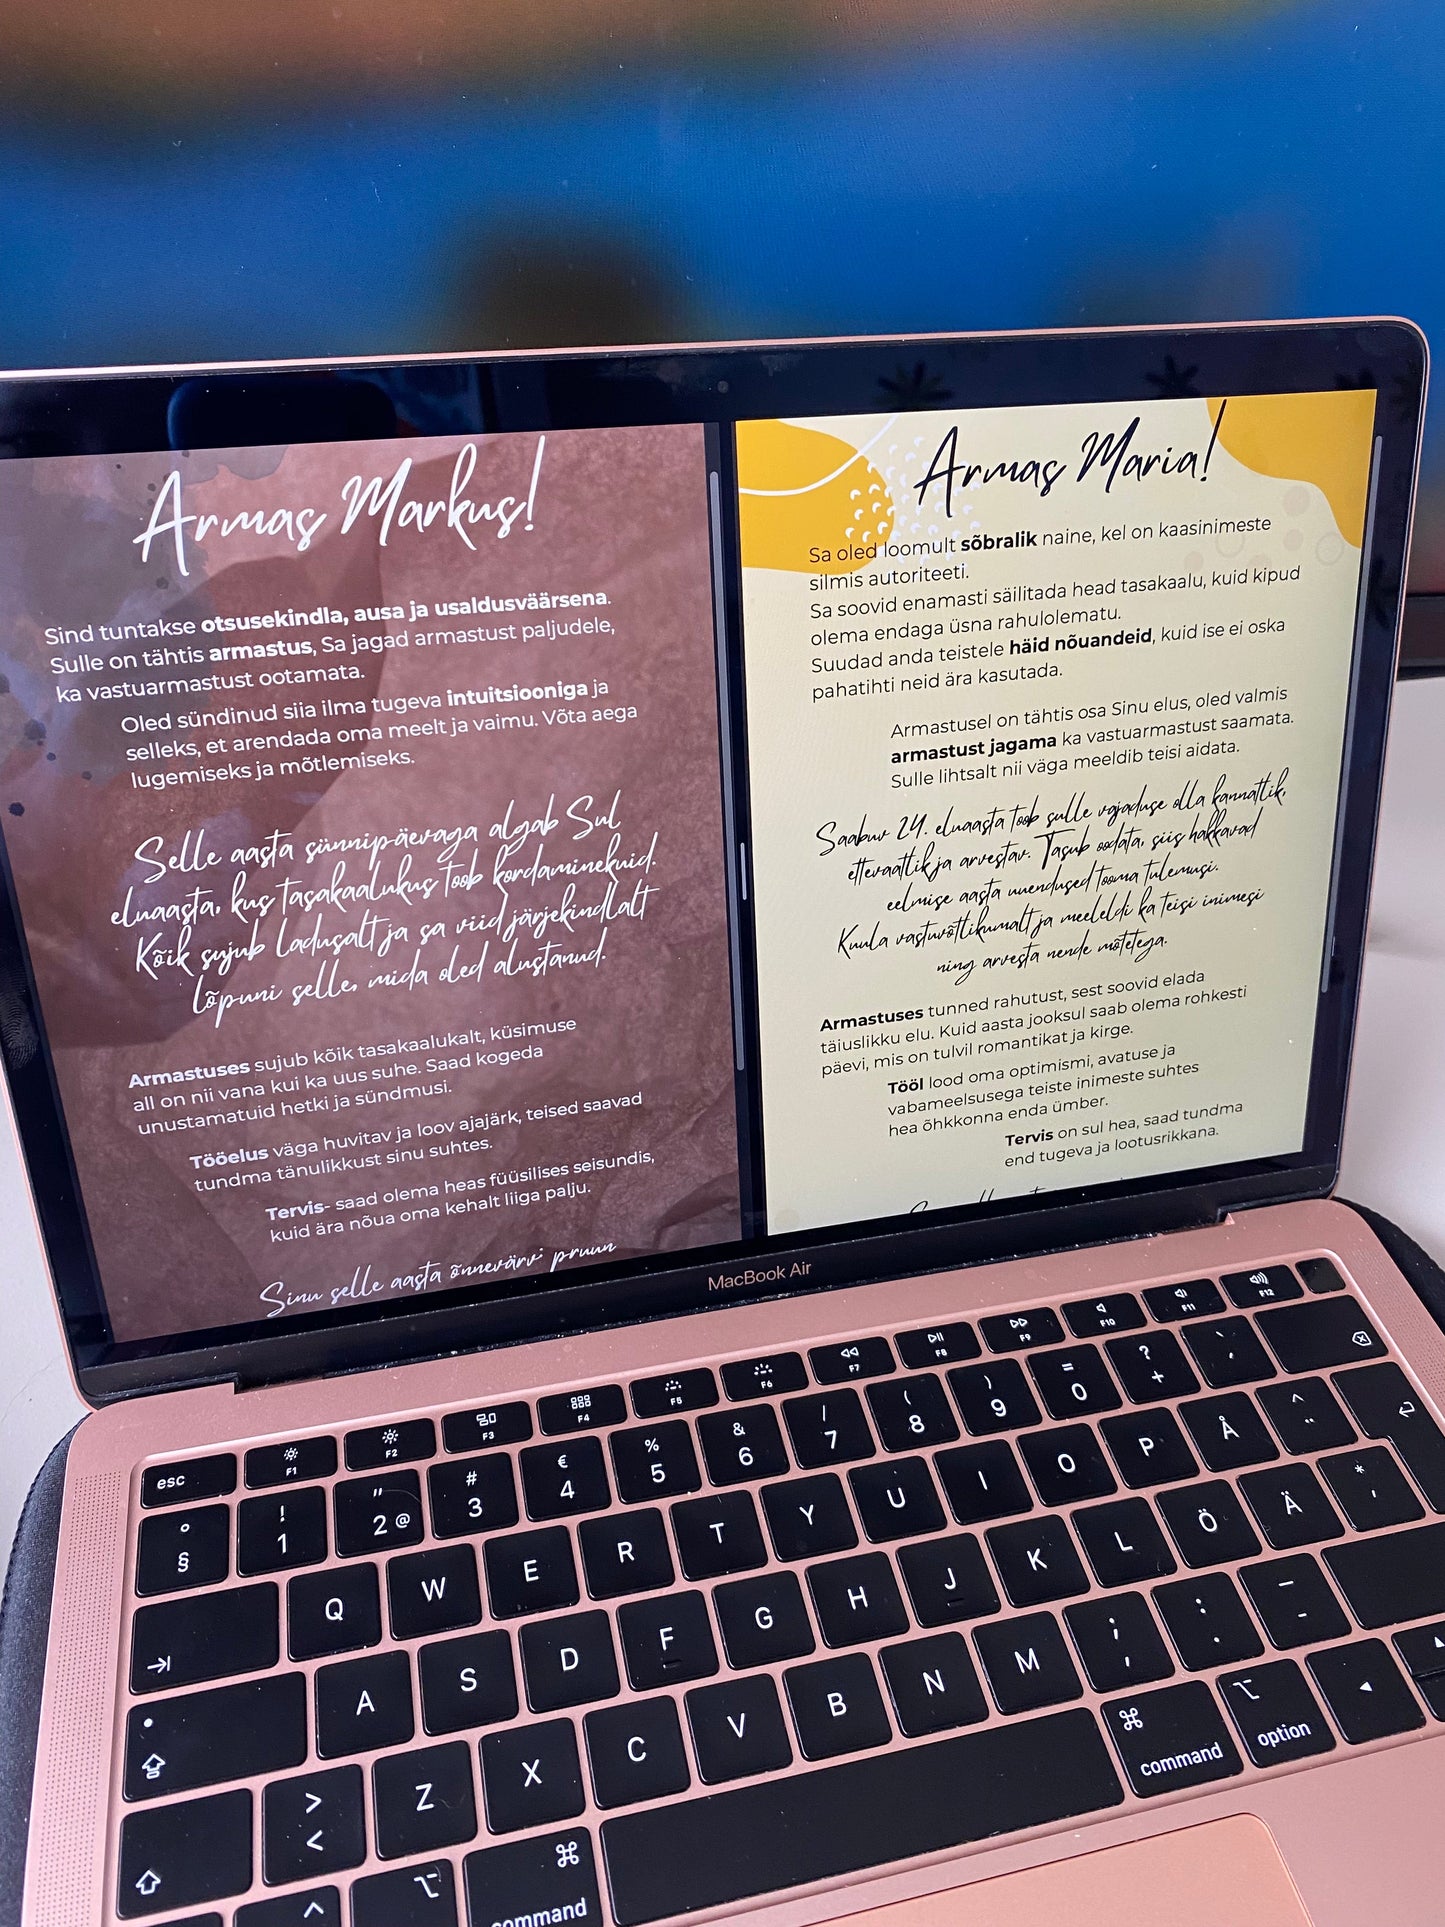 Armas Markus!
Sind tuntakse otsusekindla, ausa ja usaldusväärsena.
Sulle on tähtis armastus, Sa jagad armastust paljudele,
ka vastuarmastust ootamata.
Oled sündinud siia ilma tugeva intuitsiooniga ja
selleks, et arendada oma meelt ja vaimu. Võta aega
lugemiseks ja mõtlemiseks.
Selle aasta sünnipäevaga algab Sul
eluaasta, kus tasakaalukus toob kordaminekuid.
Kõik sujub ladusalt ja sa viid järjekindlalt
lõpuni selle, mida oled alustanud.
Armastuses sujub kõik tasakaalukalt, küsimuse
all on nii vana kui ka uus suhe. Saad kogeda
unustamatuid hetki ja sündmusi.
Tööelus väga huvitav ja loov ajajärk, teised saavad
tundma tänulikkust sinu suhtes.
Tervis- saad olema heas füüsilises seisundis,
kuid ära nõua oma kehalt liiga palju.
Sinu selle aasta õnnevärvi pruun
Armas Maria!
Sa oled loomult sõbralik naine, kel on kaasinimeste
silmis autoriteeti.
Sa soovid enamasti säilitada head tasakaalu, kuid kipud
olema endaga üsna rahulolematu.
Suudad anda teistele häid nõuandeid, kuid ise ei oska
pahatihti neid ära kasutada.
Armastusel on tähtis osa Sinu elus, oled valmis
armastust jagama ka vastuarmastust saamata.
Sulle lihtsalt nii väga meeldib teisi aidata.
Saabuv 24. eluaasta toob sulle vajaduse olla kannatlik,
ettevaatlik ja arvestav. Tasub oodata, siis hakkavad
eelmise aasta uuendused tooma tulemusi.
Kuula vastuvõtlikumalt ja meeleldi ka teisi inimesi
ning arvesta nende mõtetega.
Armastuses tunned rahutust, sest soovid elada
täiuslikku elu. Kuid aasta jooksul saab olema rohkesti
päevi, mis on tulvil romantikat ja kirge.
Tööl lood oma optimismi, avatuse ja
vabameelsusega teiste inimeste suhtes
hea õhkkonna enda ümber.
Tervis on sul hea, saad tundma
end tugeva ja lootusrikkana.
MacBook Air
esc F1 F2 F3 F4 F5 F6 F7 F8 F9 F10 F11 F12
° ! " # € % & / ( ) = ? `
§ 1 2 @ 3 4 5 6 7 8 9 0 + ´
Q W E R T Y U I O P Å ^ ¨
A S D F G H J K L Ö Ä * '
> < Z X C V B N M ; , : . _ -
⌥ ⌘ command ⌘ command ⌥ option